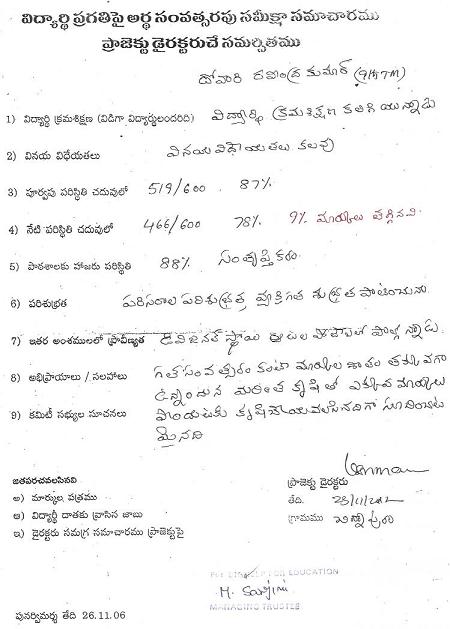 విద్యార్థి ప్రగతిపై అర్ధ సంవత్సరపు సమీక్షా సమాచారము
ప్రాజెక్టు డైరెక్టరుచే సమర్పితము
రవీంద్ర కుమార్ (9th TM)
1) విద్యార్థి క్రమశిక్షణ (విడిగా విద్యార్థులందరిది) విద్యార్థి క్రమశిక్షణ కలిగి యున్నాడు
2) వినయ విధేయతలు వినయ విధేయతలు కలవు
3) పూర్వపు పరిస్థితి చదువులో 519/600 87%
4) నేటి పరిస్థితి చదువులో 466/600 78% 9% మార్కులు తగ్గినవి
5) పాఠశాలకు హాజరు పరిస్థితి 88% సంతృప్తికరం
6) పరిశుభ్రత పరిసరాల పరిశుభ్రత వ్యక్తిగత శుభ్రత పాటించును
7) ఇతర అంశములలో ప్రావీణ్యత డివిజనల్ స్థాయి ఆటల పోటీలలో పాల్గొన్నాడు.
8) అభిప్రాయాలు / సలహాలు గత సంవత్సరం కంటా మార్కుల శాతం తక్కువగా
ఉన్నందున మరింత కృషితో ఎక్కువ మార్కులు
9) కమిటీ సభ్యుల సూచనలు పొందుటకు కృషి చేయవలసినదిగా సూచించట
మైనది
జతపరచవలసినవి
ప్రాజెక్టు డైరక్టరు
అ) మార్కుల పత్రము
తేది.
ఆ) విద్యార్థి దాతకు వ్రాసిన జాబు
గ్రామము
ఇ) డైరెక్టరు సమగ్ర సమాచారము ప్రాజెక్టుపై
EDUCATION
M. Sarojini
MANAGING TRUSTEE
పునర్విమర్శ తేది 26.11.06